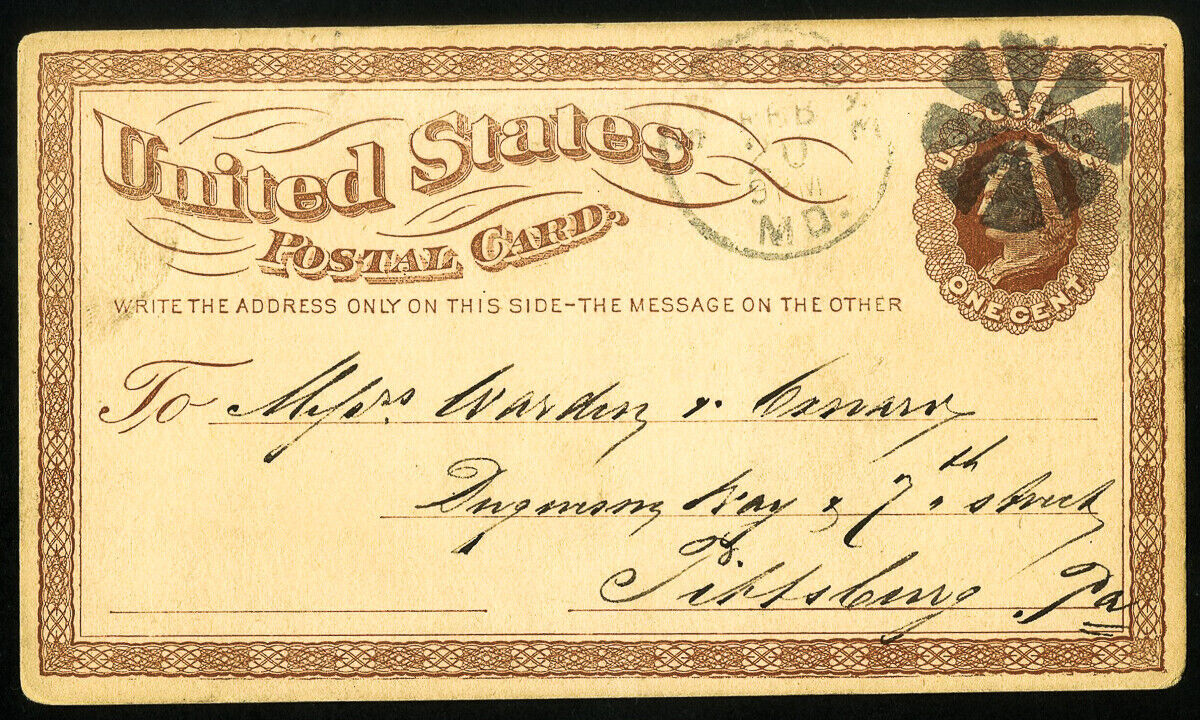 United States
POSTAL CARD.
WRITE THE ADDRESS ONLY ON THIS SIDE-THE MESSAGE ON THE OTHER
FEB
MD.
U.S. POSTAGE
ONE CENT
To Messrs Warden & Conary
Way & 7th street
Pittsburg Pa